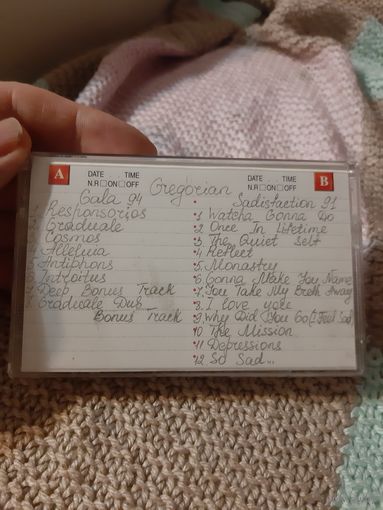 A
DATE TIME
N.R □ ON □ OFF
DATE TIME
N.R □ ON □ OFF
B
Gregorian
Gala 94
1. Responsorios
2. Graduale
Cosmos
Alleluia
5. Antiphons
Introitus
7. Deep Bonus Track
Graduale Dub
Bonus Track
Sadisfaction 91
1 Watcha Gonna Do
2 Once In Lifetime
3 The Quiet Self
4 Reflect
5. Monastry
6 Gonna Make You Name
7. You Take My Breth Away
8. I love you
9. Why Did You Go(I Feel Sad
10 The Mission
11 Depressions
12 So Sad...